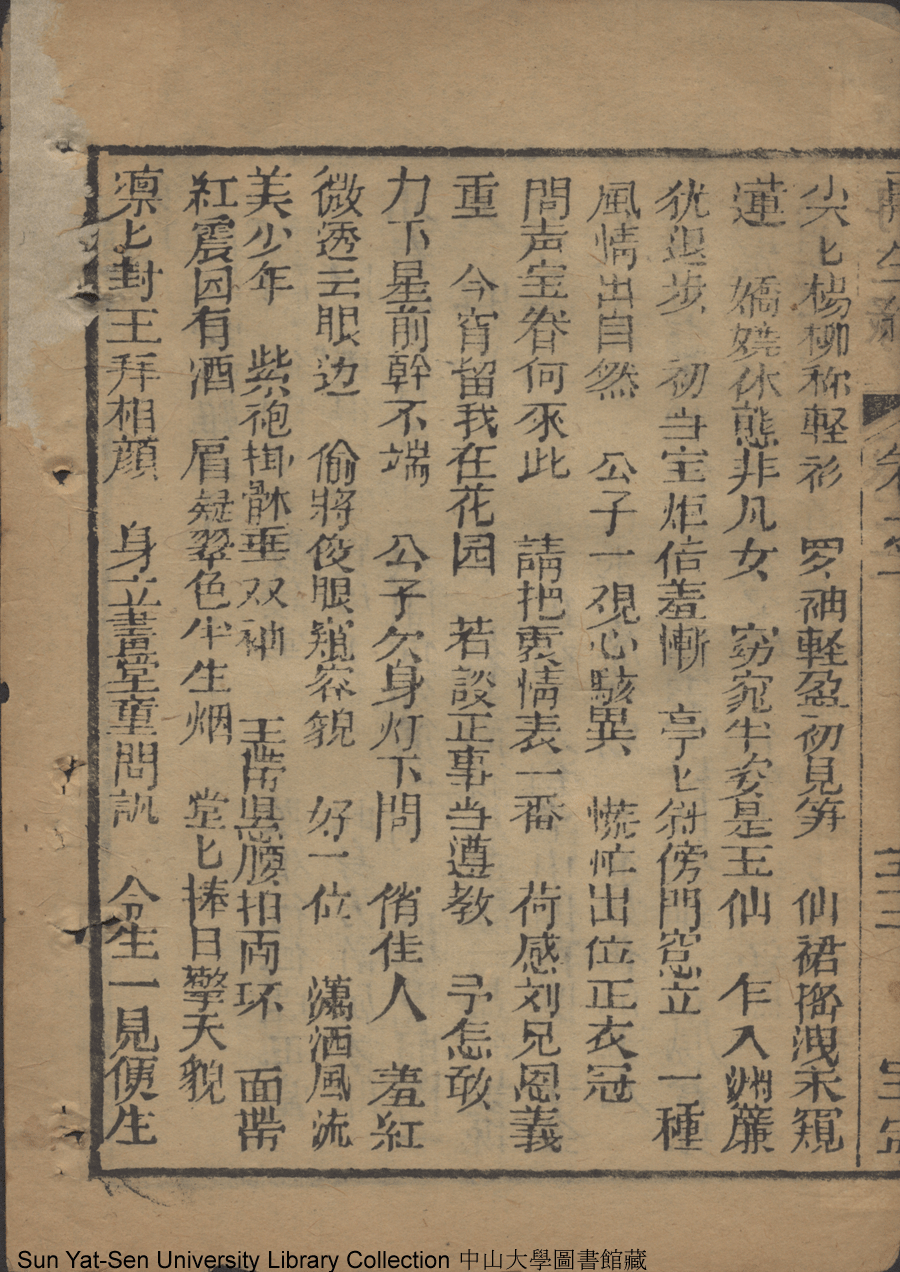 再生緣 卷之
尖匕楊柳称輕衫 罗袖輕盈初見笄 仙裙摇洩未窺
蓮 嬌嬈休態非凡女 窈窕丰姿是玉仙 乍入湘簾
犹退步 初当宝炬信羞慚 亭匕斜傍門窓立 一種
風情出自然 公子一覌心駭異 慌忙出位正衣冠
問声宝眷何來此 請把衷情表一番 荷感刘兄恩義
重 今宵留我在花园 若談正事当遵教 予怎敢
力下星前幹不端 公子欠身灯下問 俏佳人 羞紅
微透云眼边 偷將俊眼窺容貌 好一位 瀟洒風流
美少年 紫袍掛躰垂双袖 玉帶悬腰拍両环 面帶
紅震因有酒 眉凝翠色半生烟 堂匕捧日擎天貌
凛匕封王拜相顔 身立畫堂童問訊 令生一見便生
Sun Yat-Sen University Library Collection 中山大學圖書館藏